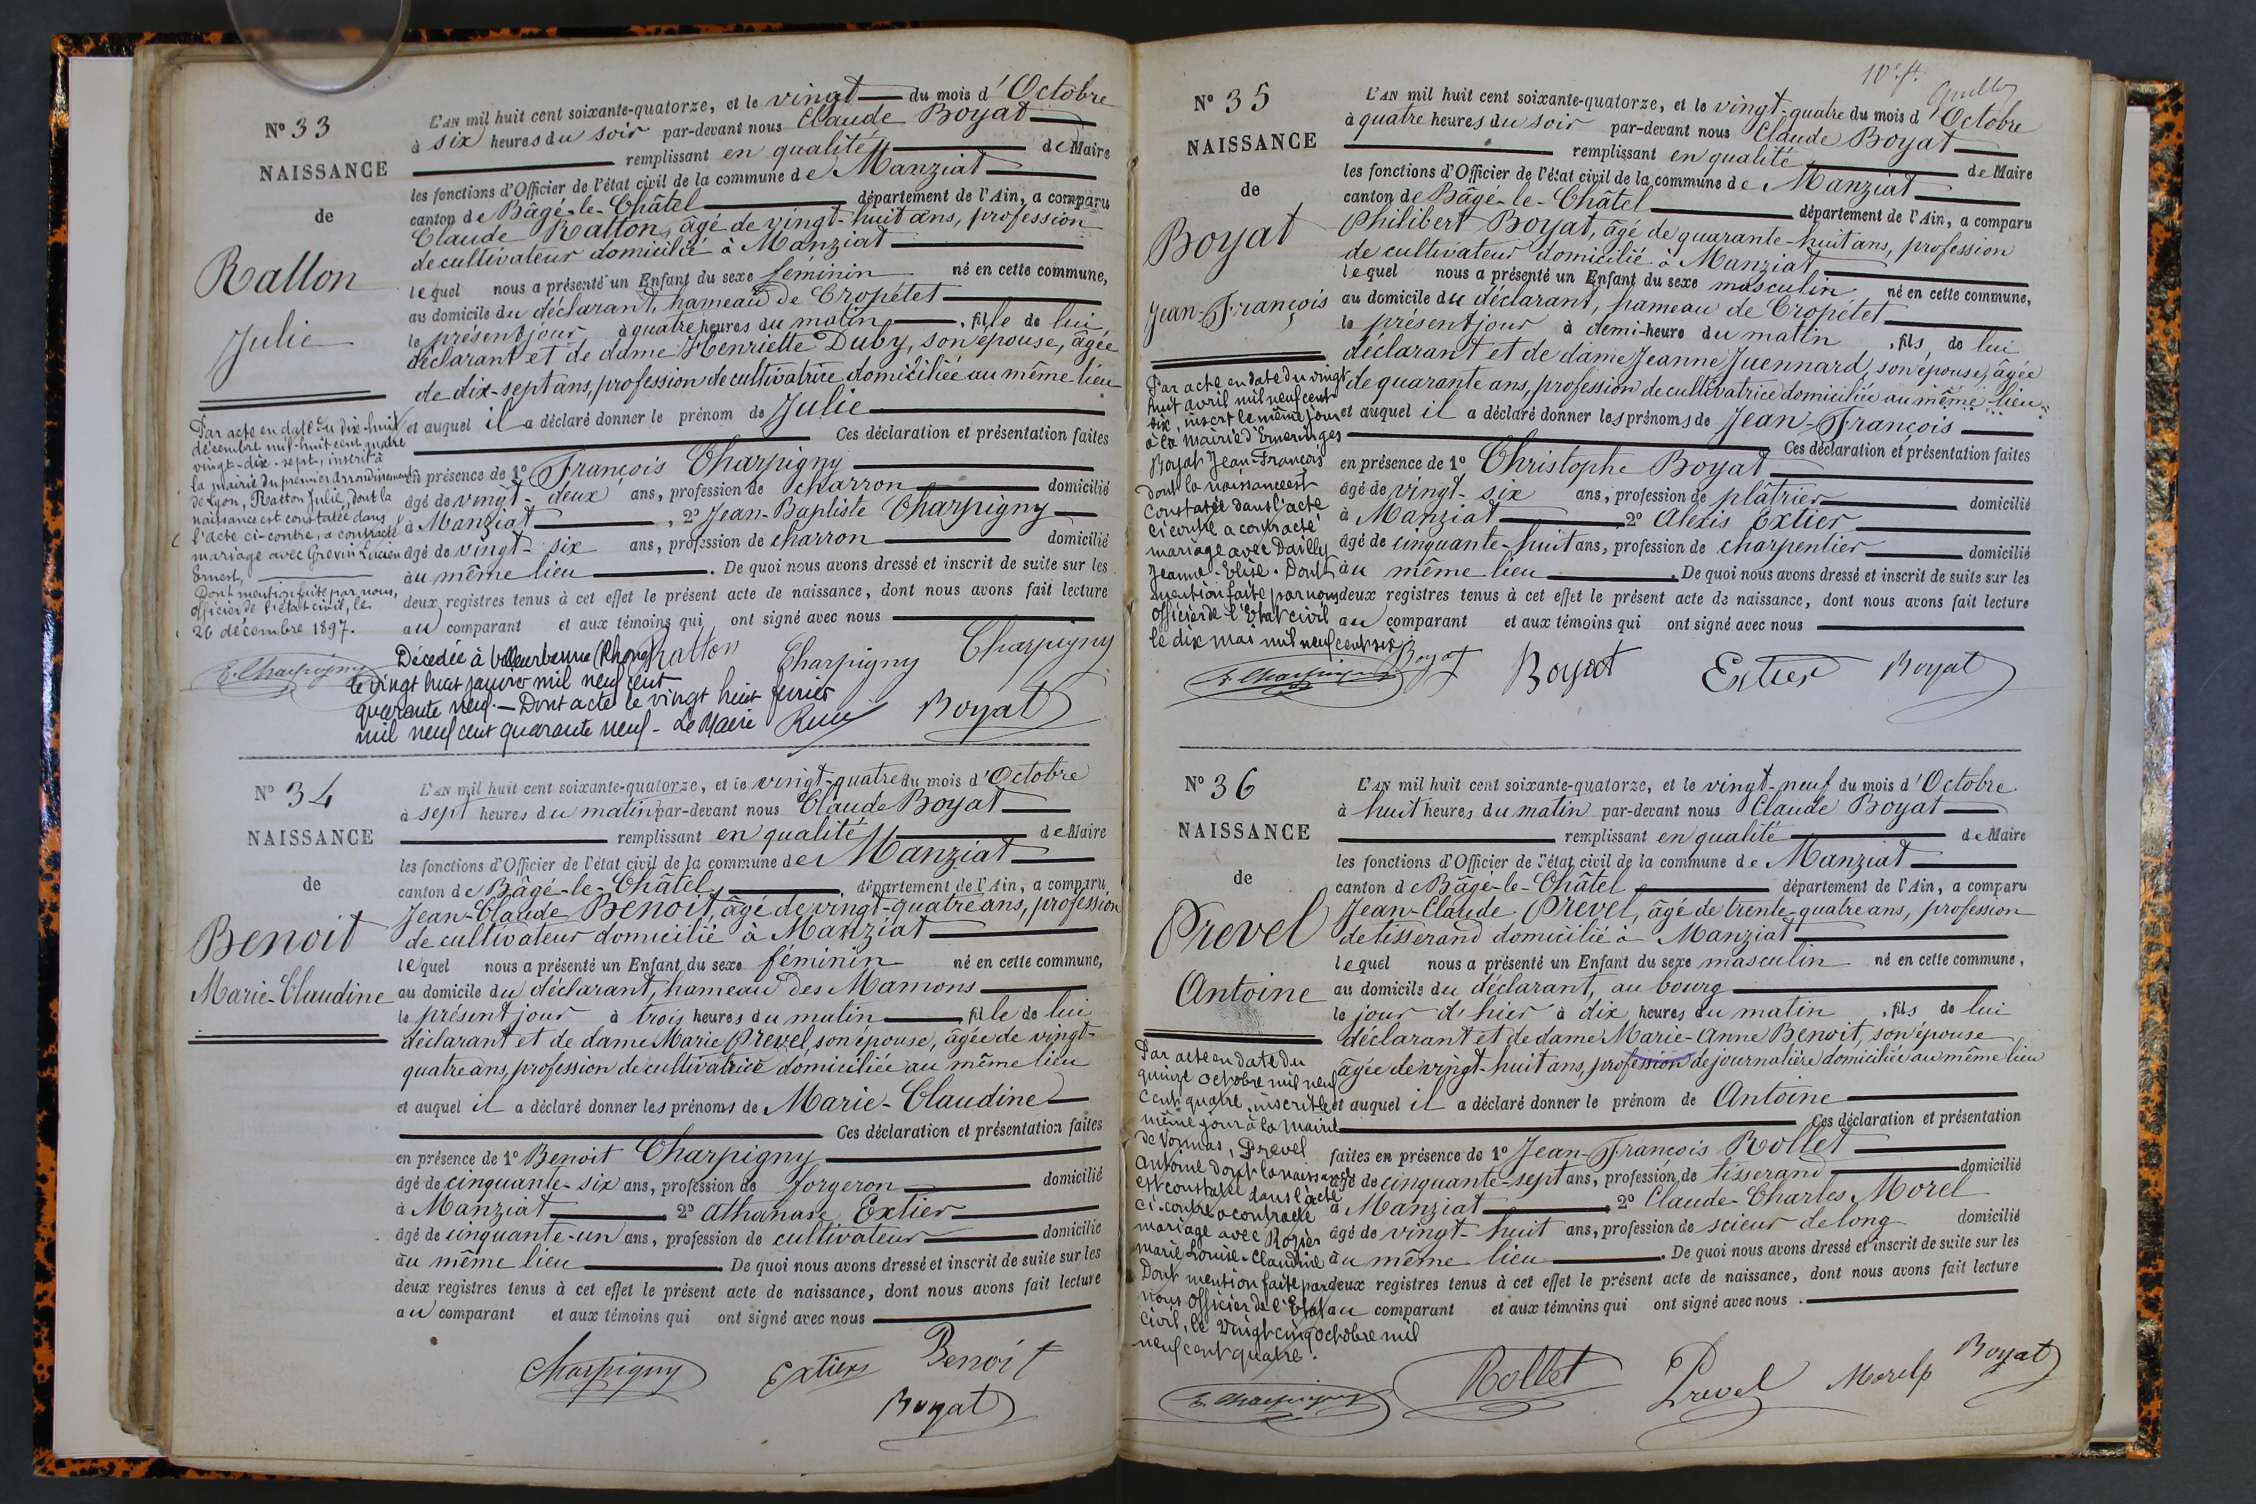 N° 33
NAISSANCE
de
Ratton
Julie
L'AN mil huit cent soixante-quatorze, et le vingt du mois d'Octobre
à six heures du soir par-devant nous Claude Boyat
remplissant en qualité de Maire
les fonctions d'Officier de l'état civil de la commune de Manziat
canton de Bâgé-le-Châtel département de l'Ain, a comparu
Claude Ratton, âgé de vingt-huit ans, profession
de cultivateur domicilié à Manziat
lequel nous a présenté un Enfant du sexe féminin né en cette commune,
au domicile du déclarant, hameau de Cropétet
le présent jour à quatre heures du matin, fille de lui
déclarant et de dame Henriette Duby, son épouse, âgée
de dix-sept ans, profession de cultivatrice domiciliée au même lieu
et auquel il a déclaré donner le prénom de Julie
Ces déclaration et présentation faites
en présence de 1° François Charpigny
âgé de vingt-deux ans, profession de charron domicilié
à Manziat, 2° Jean-Baptiste Charpigny
âgé de vingt-six ans, profession de charron domicilié
au même lieu. De quoi nous avons dressé et inscrit de suite sur les
deux registres tenus à cet effet le présent acte de naissance, dont nous avons fait lecture
au comparant et aux témoins qui ont signé avec nous
Par acte en date du dix-huit
décembre mil-huit-cent quatre
vingt-dix-sept, inscrit à
la mairie du premier arrondissement
de Lyon, Ratton Julie, dont la
naissance est constatée dans
l'acte ci-contre, a contracté
mariage avec Grevin Lucien
Ernest,
Dont mention faite par nous,
officier de l'état civil, le
26 décembre 1897.
E. Charpigny
Ratton Charpigny Charpigny
Décédée à Villeurbanne (Rhône)
le vingt huit janvier mil neuf cent
quarante neuf. — Dont acte le vingt huit février
mil neuf cent quarante neuf - Le Maire
Boyat
N° 34
NAISSANCE
de
Benoit
Marie-Claudine
L'AN mil huit cent soixante-quatorze, et le vingt-quatre du mois d'Octobre
à sept heures du matin par-devant nous Claude Boyat
remplissant en qualité de Maire
les fonctions d'Officier de l'état civil de la commune de Manziat
canton de Bâgé-le-Châtel, département de l'Ain, a comparu
Jean-Claude Benoit, âgé de vingt-quatre ans, profession
de cultivateur domicilié à Manziat
lequel nous a présenté un Enfant du sexe féminin né en cette commune,
au domicile du déclarant, hameau des Mamons
le présent jour à trois heures du matin, fille de lui
déclarant et de dame Marie Prevel, son épouse, âgée de vingt-
quatre ans, profession de cultivatrice domiciliée au même lieu
et auquel il a déclaré donner les prénoms de Marie-Claudine
Ces déclaration et présentation faites
en présence de 1° Benoit Charpigny
âgé de cinquante-six ans, profession de forgeron domicilié
à Manziat 2° Athanase Extier
âgé de cinquante-un ans, profession de cultivateur domicilié
au même lieu. De quoi nous avons dressé et inscrit de suite sur les
deux registres tenus à cet effet le présent acte de naissance, dont nous avons fait lecture
au comparant et aux témoins qui ont signé avec nous
Charpigny Extier Benoit
Boyat
10e f.
N° 35
NAISSANCE
de
Boyat
Jean-François
L'AN mil huit cent soixante-quatorze, et le vingt-quatre du mois d'Octobre
à quatre heures du soir par-devant nous Claude Boyat
remplissant en qualité de Maire
les fonctions d'Officier de l'état civil de la commune de Manziat
canton de Bâgé-le-Châtel département de l'Ain, a comparu
Philibert Boyat, âgé de quarante-huit ans, profession
de cultivateur domicilié à Manziat
lequel nous a présenté un Enfant du sexe masculin né en cette commune,
au domicile du déclarant, hameau de Cropétet
le présent jour à demi-heure du matin, fils de lui
déclarant et de dame Jeanne Juennard, son épouse, âgée
de quarante ans, profession de cultivatrice domiciliée au même lieu
et auquel il a déclaré donner les prénoms de Jean-François
Ces déclaration et présentation faites
en présence de 1° Christophe Boyat
âgé de vingt-six ans, profession de plâtrier domicilié
à Manziat 2° Alexis Extier
âgé de cinquante-huit ans, profession de charpentier domicilié
au même lieu. De quoi nous avons dressé et inscrit de suite sur les
deux registres tenus à cet effet le présent acte de naissance, dont nous avons fait lecture
au comparant et aux témoins qui ont signé avec nous
Par acte en date du vingt
huit avril mil neuf cent
six, inscrit le même jour
à la mairie d'Emeringes
Boyat Jean-François
dont la naissance est
constatée dans l'acte
ci contre a contracté
mariage avec Dailly
Jeanne-Elise. Dont
mention faite par nous
officier de l'Etat civil
le dix mai mil neuf cent six
E. Charpigny
Boyat Boyat Extier Boyat
N° 36
NAISSANCE
de
Prevel
Antoine
L'AN mil huit cent soixante-quatorze, et le vingt-neuf du mois d'Octobre
à huit heures du matin par-devant nous Claude Boyat
remplissant en qualité de Maire
les fonctions d'Officier de l'état civil de la commune de Manziat
canton de Bâgé-le-Châtel département de l'Ain, a comparu
Jean-Claude Prevel, âgé de trente-quatre ans, profession
de tisserand domicilié à Manziat
lequel nous a présenté un Enfant du sexe masculin né en cette commune,
au domicile du déclarant, au bourg
le jour d'hier à dix heures du matin, fils de lui
déclarant et de dame Marie-Anne Benoit, son épouse
âgée de vingt-huit ans, profession de journalière domiciliée au même lieu
et auquel il a déclaré donner le prénom de Antoine
Ces déclaration et présentation
faites en présence de 1° Jean-François Rollet
âgé de cinquante-sept ans, profession de tisserand domicilié
à Manziat, 2° Claude-Charles Morel
âgé de vingt-huit ans, profession de scieur de long domicilié
au même lieu. De quoi nous avons dressé et inscrit de suite sur les
deux registres tenus à cet effet le présent acte de naissance, dont nous avons fait lecture
au comparant et aux témoins qui ont signé avec nous.
Par acte en date du
quinze octobre mil neuf
cent quatre, inscrit le
même jour à la mairie
de Vonnas, Prevel
Antoine dont la naissance
est constatée dans l'acte
ci-contre a contracté
mariage avec Rozier
Marie Louise-Claudine
Dont mention faite par
nous officier de l'Etat
civil, le vingt-cinq octobre mil
neuf cent quatre.
E. Charpigny
Rollet Prevel Morel Boyat